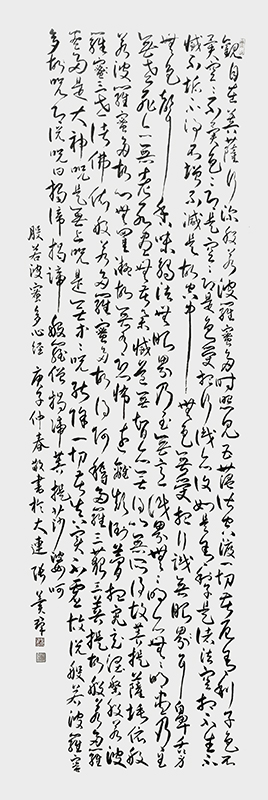 觀自在菩薩行深般若波羅蜜多時照見五蘊皆空度一切苦厄舍利子色不
異空空不異色色即是空空即是色受想行識亦復如是舍利子是諸法空相不生不
滅不垢不淨不增不減是故空中無色無受想行識無眼界耳鼻舌身
無色聲香味觸法無眼界乃至無意識界無無明亦無無明盡乃至
無老死亦無老死盡無苦集滅道無智亦無得以無所得故菩提薩埵依般
若波羅蜜多故心無罣礙故無有恐怖遠離顛倒夢想究竟涅槃般若波
羅蜜三世諸佛依般若波羅蜜多故得阿耨多羅三藐三菩提故般若波羅蜜
多是大神咒是無上咒是無等等咒能除一切苦真實不虛故說般若波羅蜜
多故咒即說咒曰揭諦揭諦般羅僧揭諦菩提莎婆呵
般若波蜜多心經庚子仲春敬書於大連張美